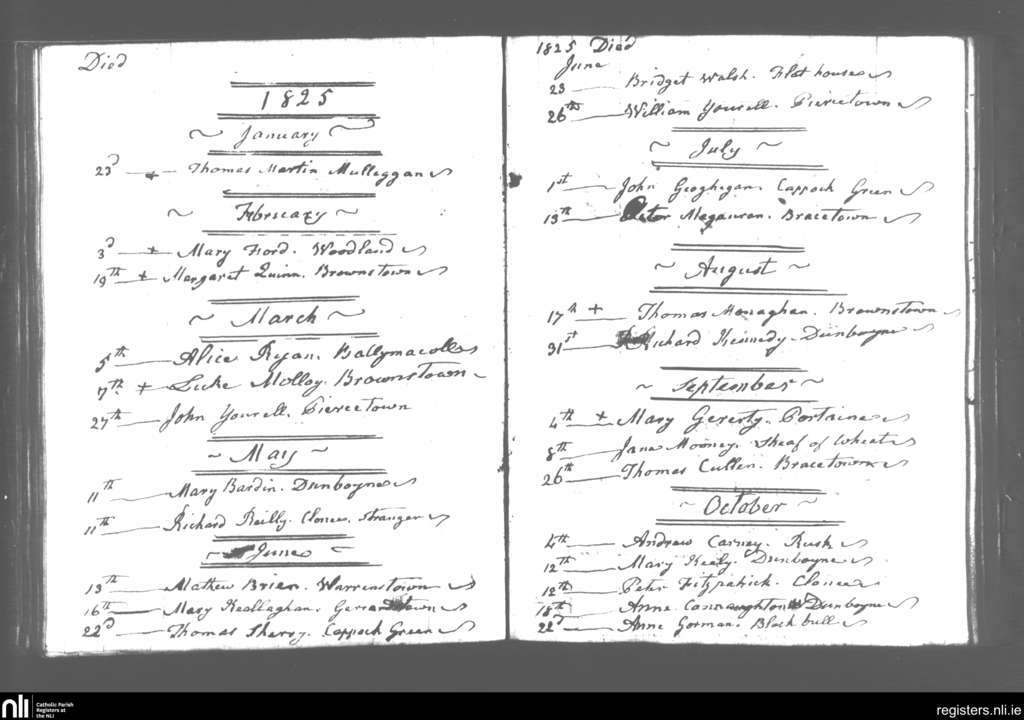 Died
1825
January
23d + Thomas Martin Mulleggan
February
3d + Mary Ford. Woodland
19th + Margaret Quinn. Brownstown
March
5th Alice Ryan. Ballymacolls
7th + Luke Molloy. Brownstown
27th John Yourell. Piercetown
May
11th Mary Bardin. Dunboyne
11th Richard Reilly. Clonee. Stranger
June
13th Mathew Brien. Warrenstown
16th Mary Keallaghan.
22d Thomas Sherry. Cappock Green
1825 Died
June
23 Bridget Walsh. Flat houses
26th William Yourell. Piercetown
July
1st John Geoghegan. Cappock Green
13th Magauran. Bracetown
August
17th + Thomas Monaghan. Brownstown
31st Richard Kennedy. Dunboyne
September
4th + Mary Gererty. Portrane
8th Jane Mooney. Sheaf of Wheat
26th Thomas Cullen. Bracetown
October
4th Andrew Carney. Rusk
12th Mary Kealy. Dunboyne
12th Peter Fitzpatrick. Clonee
Anne Connaughton Dunboyne
22d Anne Gorman. Black bull
nli Catholic Parish
Registers at
the NLI
registers.nli.ie